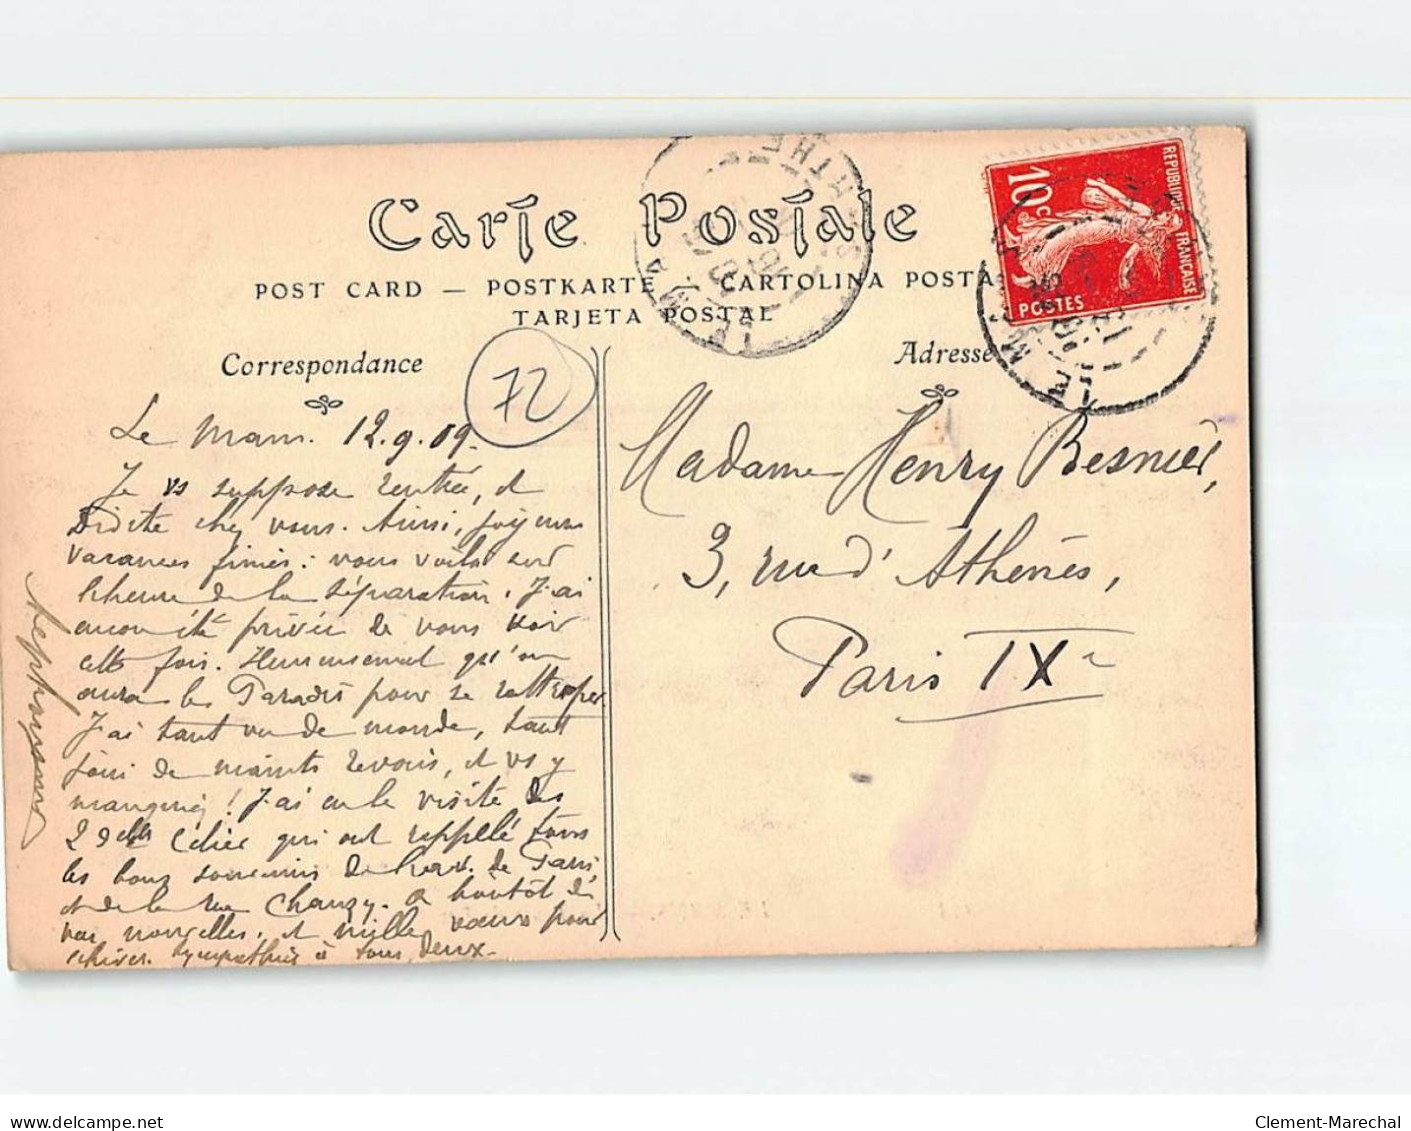 Carte Postale
POST CARD — POSTKARTE — CARTOLINA POSTA
TARJETA POSTAL
Correspondance
72
Adresse
10c
REPUBLIQUE FRANÇAISE
POSTES
LE MANS
SARTHE
Le Mans. 12.9.09.
Je vs suppose rentrée, et
chez vous. Ainsi, joyeuses
vacances finies: vous voilà sur
l'heure de la séparation. J'ai
encore été privée de vous voir
cette fois. Heureusement qu'on
aura le Paradis pour se rattraper
J'ai tant vu de monde, tant
joui de maints revoirs, et vs y
manquiez! J'ai eu la visite des
2 Célier qui ont rappelé tous
les bons souvenirs de de Paris,
et de la rue Chanzy. A bientôt de
vos nouvelles, et mille vœux pour
l'hiver. Sympathies à tous deux.
Madame Henry Besnier,
3, rue d'Athènes,
Paris IXe
Clement-Marechal
delcampe.net